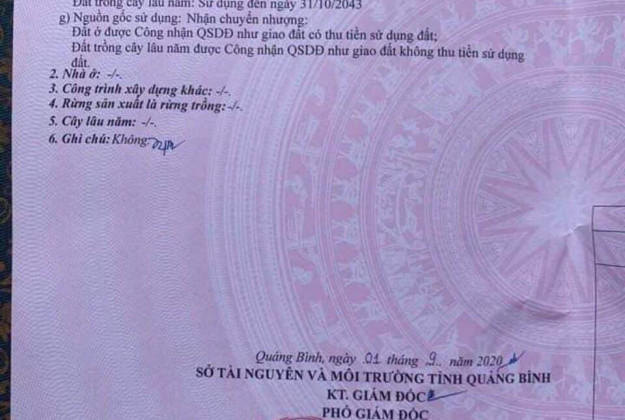 Đất trồng cây lâu năm: Sử dụng đến ngày 31/10/2043
g) Nguồn gốc sử dụng: Nhận chuyển nhượng:
Đất ở được Công nhận QSDĐ như giao đất có thu tiền sử dụng đất;
Đất trồng cây lâu năm được Công nhận QSDĐ như giao đất không thu tiền sử dụng
đất.
2. Nhà ở: -/-.
3. Công trình xây dựng khác: -/-.
4. Rừng sản xuất là rừng trồng: -/-.
5. Cây lâu năm: -/-.
6. Ghi chú: Không.
Quảng Bình, ngày 01 tháng 9 năm 2020
SỞ TÀI NGUYÊN VÀ MÔI TRƯỜNG TỈNH QUẢNG BÌNH
KT. GIÁM ĐỐC
PHÓ GIÁM ĐỐC